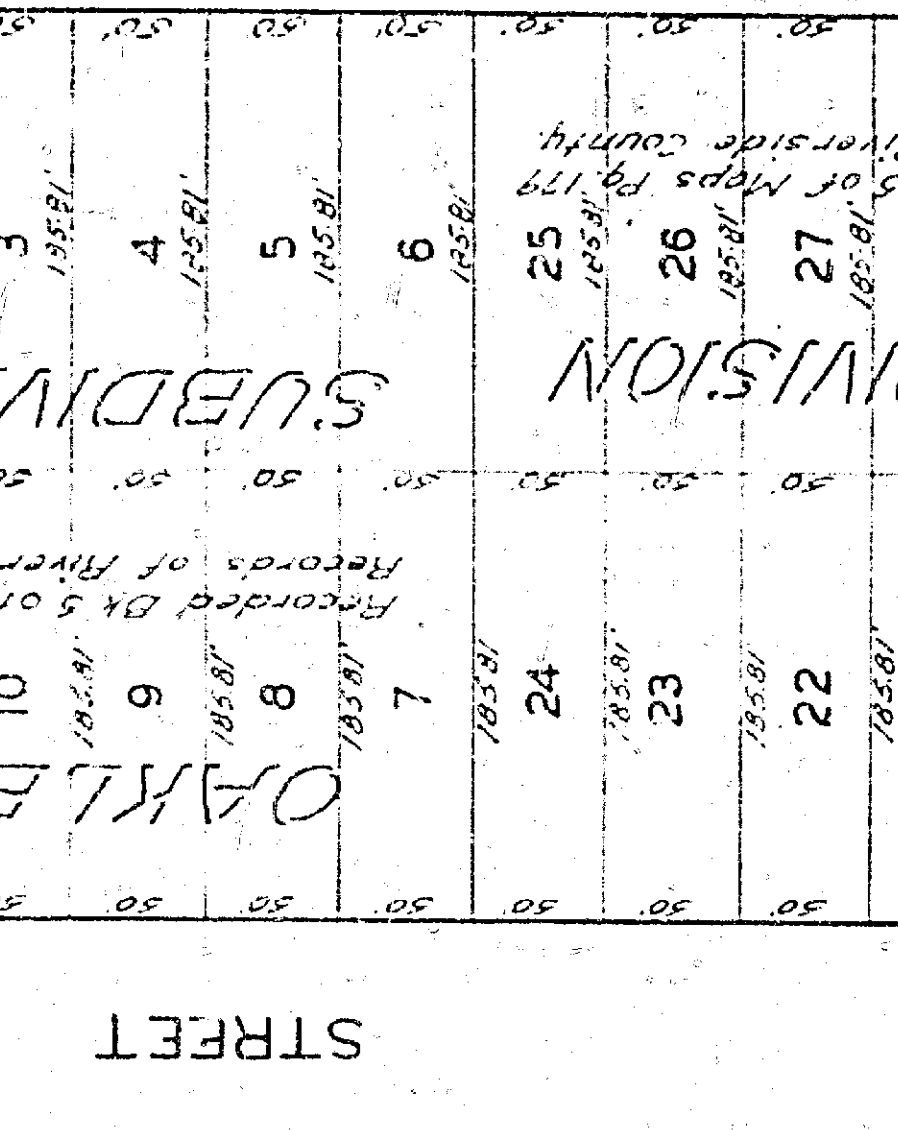 50. 50. 50. 50. 50. 50. 50.
iverside County.
5 of Maps Pg. 179
3 4 5 6 25 26 27
185.81' 185.81' 185.81' 185.81' 185.81' 185.81' 185.81'
SUBDIV
VISION
50. 50. 50. 50. 50. 50. 50.
Records of River
Recorded Bk 5 of
10 9 8 7 24 23 22
185.81' 185.81' 185.81' 185.81 185.81' 185.81 185.81'
OAKLE
50. 50. 50. 50. 50. 50. 50.
STREET